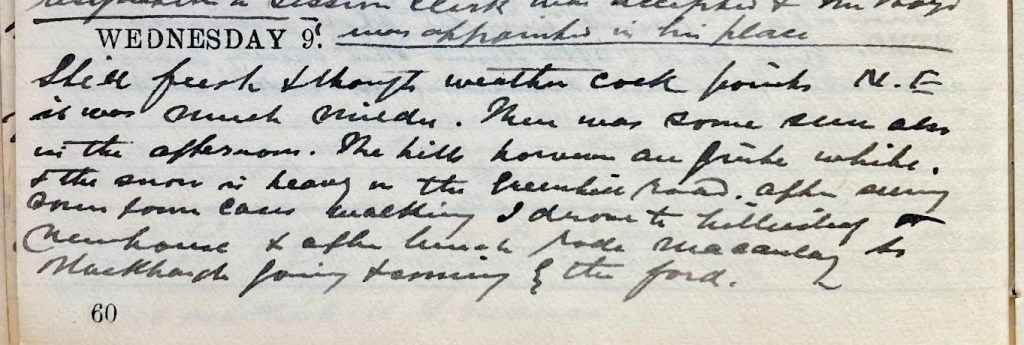 resignation as Session Clerk was accepted & Mr
WEDNESDAY 9. was appointed in his place
Still fresh & though weather cock points N.E
it was much milder. There was some sun also
in the afternoon. The hills however are quite white.
& the snow is heavy on the Greenhill road. After seeing
some town cases walking I drove to &
Newhouse & after lunch rode Macaulay to
going & coming by the ford.
60